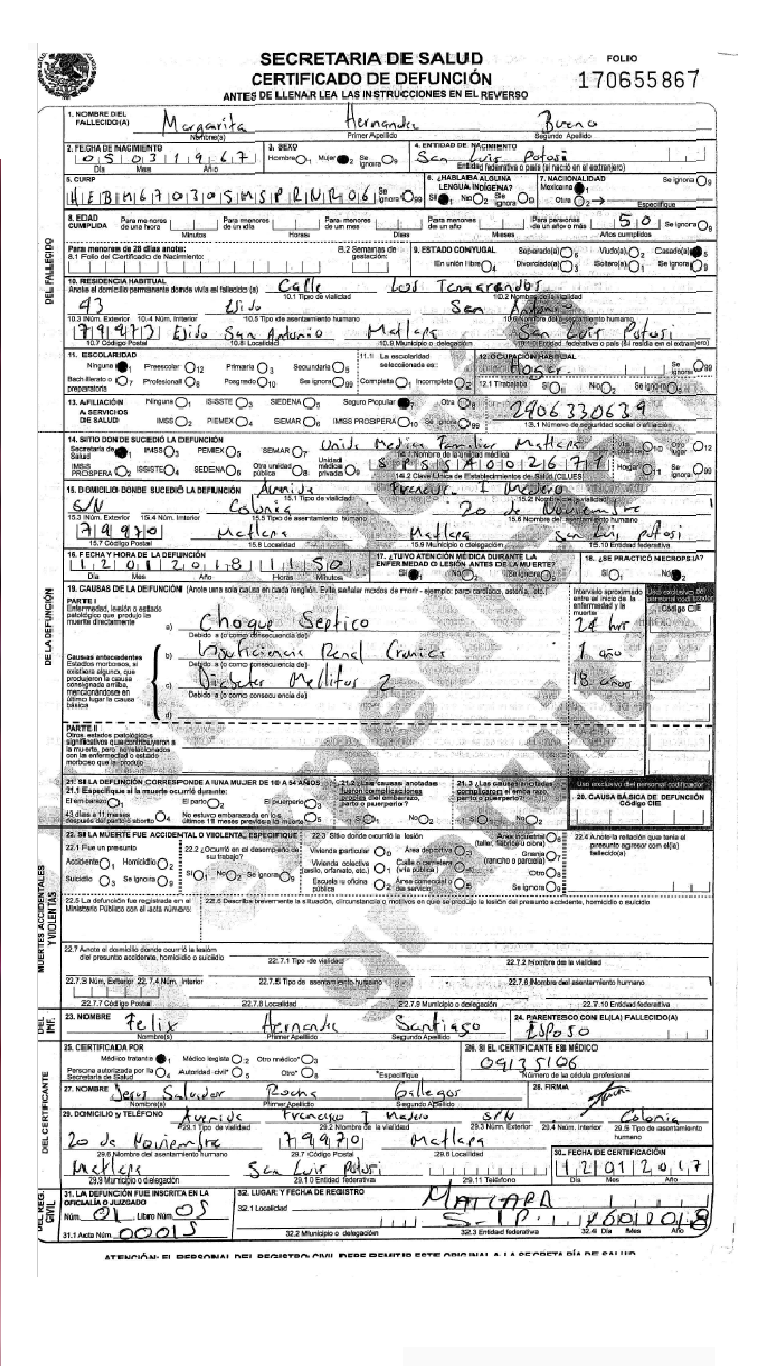 SECRETARIA DE SALUD
FOLIO
CERTIFICADO DE DEFUNCIÓN
170655867
ANTES DE LLENAR LEA LAS INSTRUCCIONES EN EL REVERSO
1. NOMBRE DEL FALLECIDO(A) Margarita Hernandez Bueno
Nombre(s) Primer Apellido Segundo Apellido
2. FECHA DE NACIMIENTO 05 03 1967
Día Mes Año
3. SEXO Hombre 1 Mujer 2 Se ignora 9
4. ENTIDAD DE NACIMIENTO San Luis Potosi
Entidad federativa o país (si nació en el extranjero)
5. CURP Se ignora 99
6. ¿HABLABA ALGUNA LENGUA INDÍGENA? Sí 1 No 2 Se ignora 9
7. NACIONALIDAD Mexicana 1 Otra 2 Especifique Se ignora 9
8. EDAD CUMPLIDA Para menores de una hora Minutos Para menores de un día Horas Para menores de un mes Días Para menores de un año Meses Para personas de un año o más 50 Años cumplidos Se ignora 9
Para menores de 28 días anote:
8.1 Folio del Certificado de Nacimiento: 8.2 Semanas de gestación:
9. ESTADO CONYUGAL Separado(a) 6 Viudo(a) 2 Casado(a) 5
En unión libre 4 Divorciado(a) 3 Soltero(a) 1 Se ignora 9
10. RESIDENCIA HABITUAL
Anote el domicilio permanente donde vivía el fallecido (a) Calle Los
10.1 Tipo de vialidad 10.2 Nombre de la vialidad
Ejido San Antonio
10.3 Núm. Exterior 10.4 Núm. Interior 10.5 Tipo de asentamiento humano 10.6 Nombre del asentamiento humano
79973 Ejido San Antonio Matlapa San Luis Potosi
10.7 Código Postal 10.8 Localidad 10.9 Municipio o delegación 10.10 Entidad federativa o país (Si residía en el extranjero)
11. ESCOLARIDAD
Ninguna 1 Preescolar 12 Primaria 3 Secundaria 5
Bachillerato o preparatoria 7 Profesional 8 Posgrado 10 Se ignora 99
11.1 La escolaridad seleccionada es: Completa 1 Incompleta 2
12. OCUPACIÓN HABITUAL Hogar Se ignora 99
12.1 Trabajaba Sí 1 No 2 Se ignora 9
13. AFILIACIÓN A SERVICIOS DE SALUD Ninguna 1 ISSSTE 3 SEDENA 5 Seguro Popular 7 Otra 8
IMSS 2 PEMEX 4 SEMAR 6 IMSS PROSPERA 10 Se ignora 99
2406330639
13.1 Número de seguridad social o afiliación
14. SITIO DONDE SUCEDIÓ LA DEFUNCIÓN
Secretaría de Salud 1 IMSS 3 PEMEX 5 SEMAR 7 Unidad médica privada 9 Vía pública 10 Otro lugar 12
IMSS PROSPERA 2 ISSSTE 4 SEDENA 6 Otra unidad pública 8 Hogar 11 Se ignora 99
Matlapa
14.1 Nombre de la unidad médica
14.2 Clave Única de Establecimientos de Salud (CLUES)
15. DOMICILIO DONDE SUCEDIÓ LA DEFUNCIÓN Avenida I Madero
15.1 Tipo de vialidad 15.2 Nombre de la vialidad
S/N Colonia 20 de Noviembre
15.3 Núm. Exterior 15.4 Núm. Interior 15.5 Tipo de asentamiento humano 15.6 Nombre del asentamiento humano
79970 Matlapa Matlapa San Luis Potosi
15.7 Código Postal 15.8 Localidad 15.9 Municipio o delegación 15.10 Entidad federativa
16. FECHA Y HORA DE LA DEFUNCIÓN 12 01 2018 11 50
Día Mes Año Horas Minutos
17. ¿TUVO ATENCIÓN MÉDICA DURANTE LA ENFERMEDAD O LESIÓN ANTES DE LA MUERTE? Sí 1 No 2 Se ignora 9
18. ¿SE PRACTICÓ NECROPSIA? Sí 1 No 2
19. CAUSAS DE LA DEFUNCIÓN (Anote una sola causa en cada renglón. Evite señalar modos de morir - ejemplo: paro cardíaco, astenia, etc.)
Intervalo aproximado entre el inicio de la enfermedad y la muerte
Uso exclusivo del personal codificador
Código CIE
PARTE I
Enfermedad, lesión o estado patológico que produjo la muerte directamente
a) Choque Septico 24 hrs
Debido a (o como consecuencia de)
Causas antecedentes
Estados morbosos, si existiera alguno, que produjeron la causa consignada arriba, mencionándose en último lugar la causa básica
b) Insuficiencia Renal Cronica 1 año
Debido a (o como consecuencia de)
c) Diabetes Mellitus 2 18 años
Debido a (o como consecuencia de)
d)
PARTE II
Otros estados patológicos significativos que contribuyeron a la muerte, pero no relacionados con la enfermedad o estado morboso que la produjo
21. SI LA DEFUNCIÓN CORRESPONDE A UNA MUJER DE 10 A 54 AÑOS
21.1 Especifique si la muerte ocurrió durante:
El embarazo 1 El parto 2 El puerperio 3
43 días a 11 meses después del parto o aborto 4 No estuvo embarazada en los últimos 11 meses previos a la muerte 5
21.2 ¿Las causas anotadas fueron complicaciones propias del embarazo, parto o puerperio? Sí 1 No 2
21.3 ¿Las causas anotadas complicaron el embarazo, parto o puerperio? Sí 1 No 2
Uso exclusivo del personal codificador
20. CAUSA BÁSICA DE DEFUNCIÓN
Código CIE
22. SI LA MUERTE FUE ACCIDENTAL O VIOLENTA, ESPECIFIQUE
22.1 Fue un presunto
Accidente 1 Homicidio 2
Suicidio 3 Se ignora 9
22.2 ¿Ocurrió en el desempeño de su trabajo? Sí 1 No 2 Se ignora 9
22.3 Sitio donde ocurrió la lesión
Vivienda particular 0 Área deportiva 3 Área industrial (taller, fábrica u obra) 6
Vivienda colectiva (asilo, orfanato, etc.) 1 Calle o carretera (vía pública) 4 Granja (rancho o parcela) 7
Escuela u oficina pública 2 Área comercial o de servicios 5 Otro 8
Se ignora 9
22.4 Anote la relación que tenía el presunto agresor con el(la) fallecido(a)
22.5 La defunción fue registrada en el Ministerio Público con el acta número:
22.6 Describa brevemente la situación, circunstancia o motivos en que se produjo la lesión del presunto accidente, homicidio o suicidio
22.7 Anote el domicilio donde ocurrió la lesión del presunto accidente, homicidio o suicidio
22.7.1 Tipo de vialidad 22.7.2 Nombre de la vialidad
22.7.3 Núm. Exterior 22.7.4 Núm. Interior 22.7.5 Tipo de asentamiento humano 22.7.6 Nombre del asentamiento humano
22.7.7 Código Postal 22.7.8 Localidad 22.7.9 Municipio o delegación 22.7.10 Entidad federativa
23. NOMBRE Felix Hernandez Santiago
Nombre(s) Primer Apellido Segundo Apellido
24. PARENTESCO CON EL(LA) FALLECIDO(A) Esposo
25. CERTIFICADA POR
Médico tratante 1 Médico legista 2 Otro médico* 3
Persona autorizada por la Secretaría de Salud 4 Autoridad civil* 5 Otro* 8 *Especifique
26. SI EL CERTIFICANTE ES MÉDICO
09135166
Número de la cédula profesional
27. NOMBRE Jesus Salvador Rocha Gallegos
Nombre(s) Primer Apellido Segundo Apellido
28. FIRMA
29. DOMICILIO y TELÉFONO Avenida Francisco I Madero S/N Colonia
29.1 Tipo de vialidad 29.2 Nombre de la vialidad 29.3 Núm. Exterior 29.4 Núm. Interior 29.5 Tipo de asentamiento humano
20 de Noviembre 79970 Matlapa
29.6 Nombre del asentamiento humano 29.7 Código Postal 29.8 Localidad
Matlapa San Luis Potosi
29.9 Municipio o delegación 29.10 Entidad federativa 29.11 Teléfono
30. FECHA DE CERTIFICACIÓN
12 01 2017
Día Mes Año
31. LA DEFUNCIÓN FUE INSCRITA EN LA OFICIALÍA O JUZGADO
Núm. 01 Libro Núm. 05
31.1 Acta Núm. 00015
32. LUGAR Y FECHA DE REGISTRO
32.1 Localidad MATLAPA
S.L.P.
32.2 Municipio o delegación 32.3 Entidad federativa 32.4 Día Mes Año
ATENCIÓN: EL PERSONAL DEL REGISTRO CIVIL DEBE REMITIR ESTE ORIGINAL A LA SECRETARÍA DE SALUD
DEL FALLECIDO
DE LA DEFUNCIÓN
MUERTES ACCIDENTALES Y VIOLENTAS
DEL INF.
DEL CERTIFICANTE
DEL REG. CIVIL